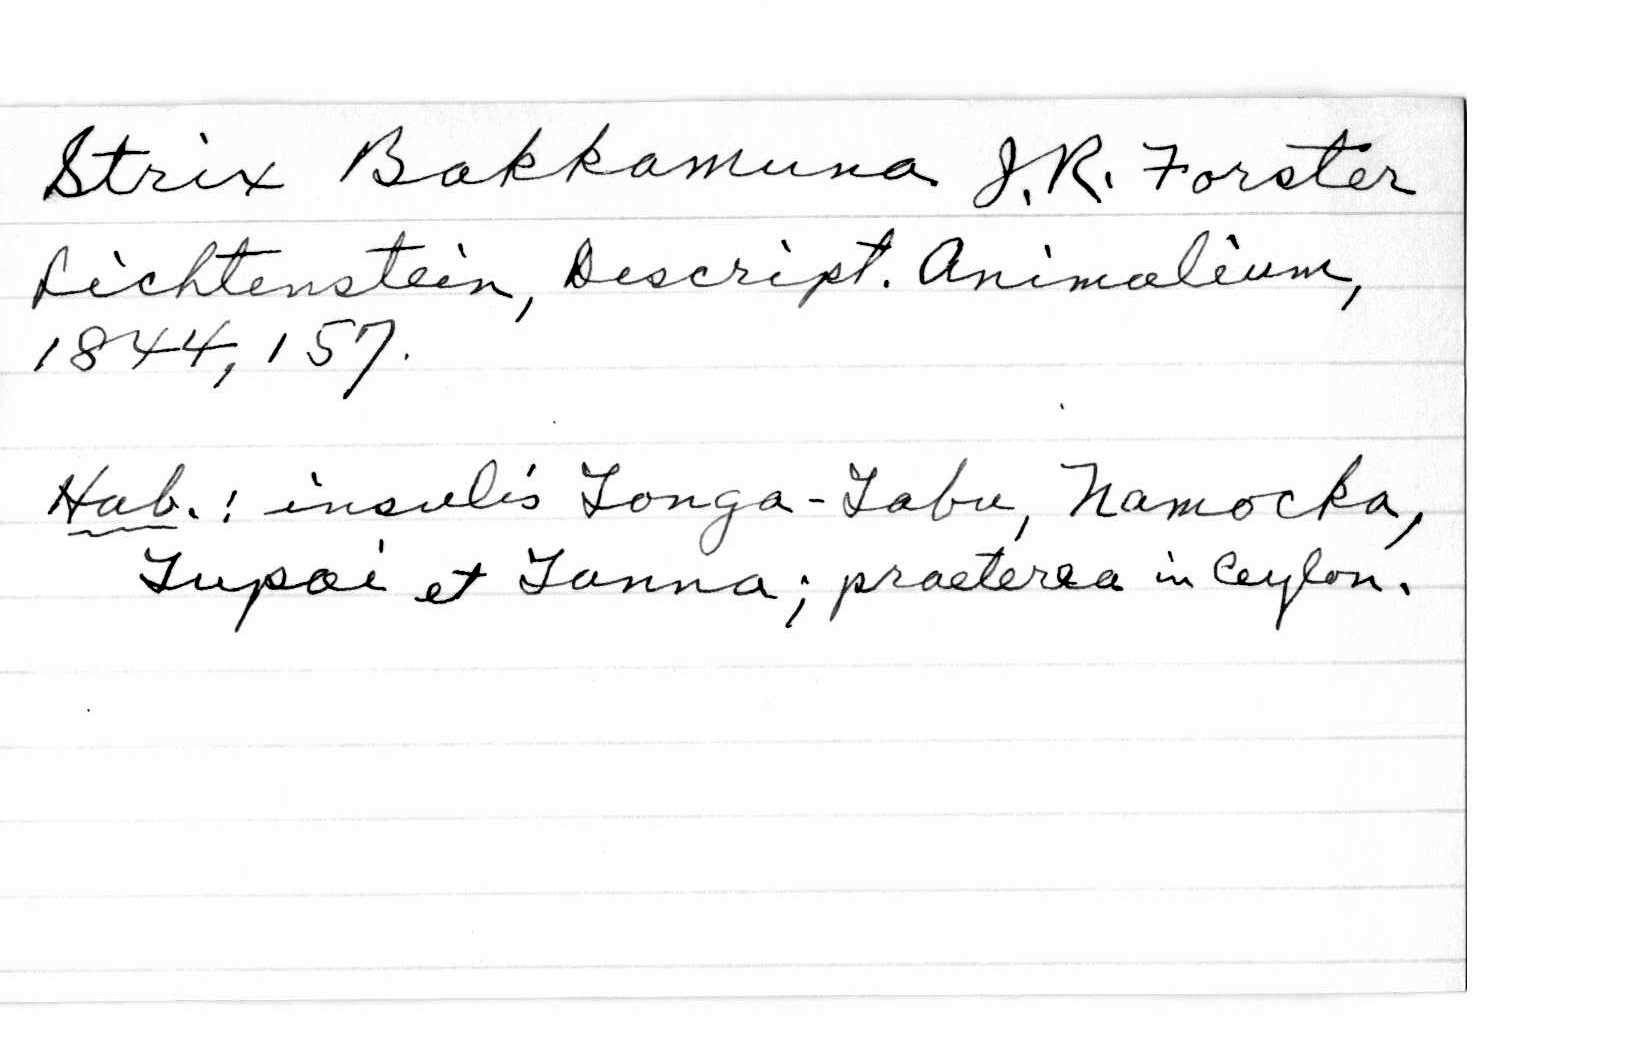 Strix Bakkamuna J.R. Forster
Lichtenstein, Descript. Animalium,
1844, 157.
Hab.: insulis Tonga-Tabu, Namocka,
Tupai et Tanna; praeterea in Ceylon.